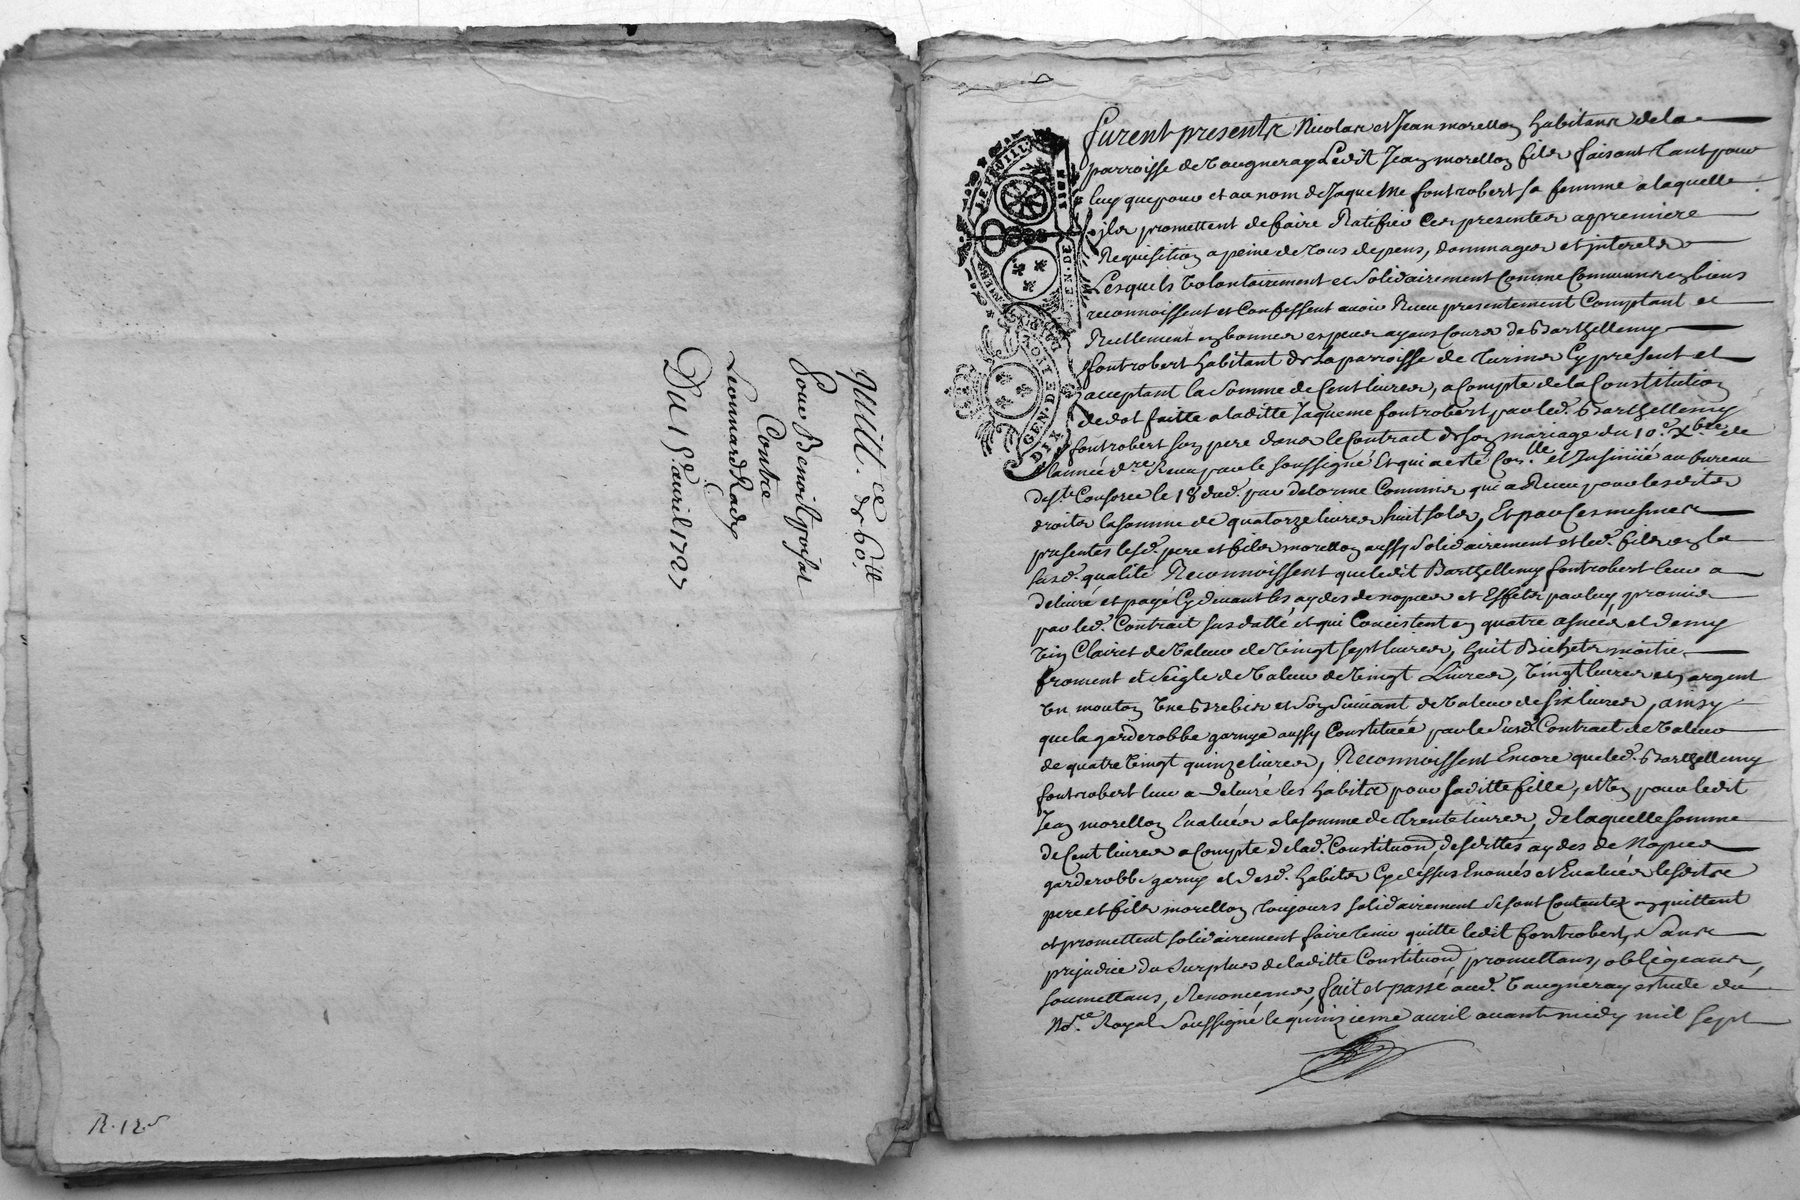 quitt.ce de 60.ll
Pour Benoist
Contre
Leonnard
Du 15.e auril 1727
R. 12.s
GEN. DE LYON
DIX
Furent presents Nicolas et Jean morellon habitans de la
parroisse de Vaugneray Ledit Jean morellon fils faisant tant pour
luy que pour et au nom de Jaqueme fontrobert sa femme a laquelle
ils promettent de faire Ratifier Ces presentes a premiere
Requisition a peine de tous depens, dommages et interets
Lesquels Volontairement et Solidairement Comme Communs en biens
reconnoissent et Confessent auoir Receu presentement Comptant et
Reellement en bonnes especes ayans Cours de Barthellemy
fontrobert habitant de la parroisse de Turins Cy present et
acceptant la Somme de Cent liures, a Compte de la Constitution
de dot faitte a laditte Jaqueme fontrobert par led. Barthellemy
fontrobert son pere dans le Contrat de son mariage du 10.e Xbre de
l'année d.re Receu par le soussigné Et qui a esté Con.llé et Insinüé au bureau
de s.te Consorce le 18 dud. par delorme Commis qui a Receu pour lesdits
droits la somme de quatorze liures huit sols, Et par Ces mesmes
presentes lesd. pere et fils morellon aussy Solidairement et led. fils en la
susd. qualité Reconnoissent que ledit Barthellemy fontrobert leur a
deliuré et payé Cy deuant les aydes de nopces et Effets par luy promis
par led. Contrat sus datté et qui Consistent en quatre asnées et demy
Vin Clairet de Valeur de Vingt sept liures, huit Bichets moitié
froment et seigle de Valeur de Vingt Liures, Vingt liures en argent
Un mouton Une Brebis et Son Suiuant de Valeur de six liures, ainsy
que la garderobbe garnye aussy Constituée par le Susd. Contrat de Valeur
de quatre Vingt quinze liures, Reconnoissent Encore que led. Barthellemy
fontrobert leur a deliuré les habits pour saditte fille, et Un pour ledit
Jean morellon Eualués a la somme de Trente liures, de laquelle somme
de Cent liures a Compte de lad. Constitution, desdittes aydes de Nopces
garderobbe garny et desd. habits Cy dessus Enoncés et Eualués lesdits
pere et fils morellon toujours solidairement se sont Contentez en quittent
et promettent solidairement faire tenir quitte ledit fontrobert, Sans
prejudice du Surplus de laditte Constitution, promettans, obligeans,
soumettans, Renonceans, fait et passé aud. Vaugneray estude du
No.re Royal Soussigné le quinzieme auril auant midy mil sept